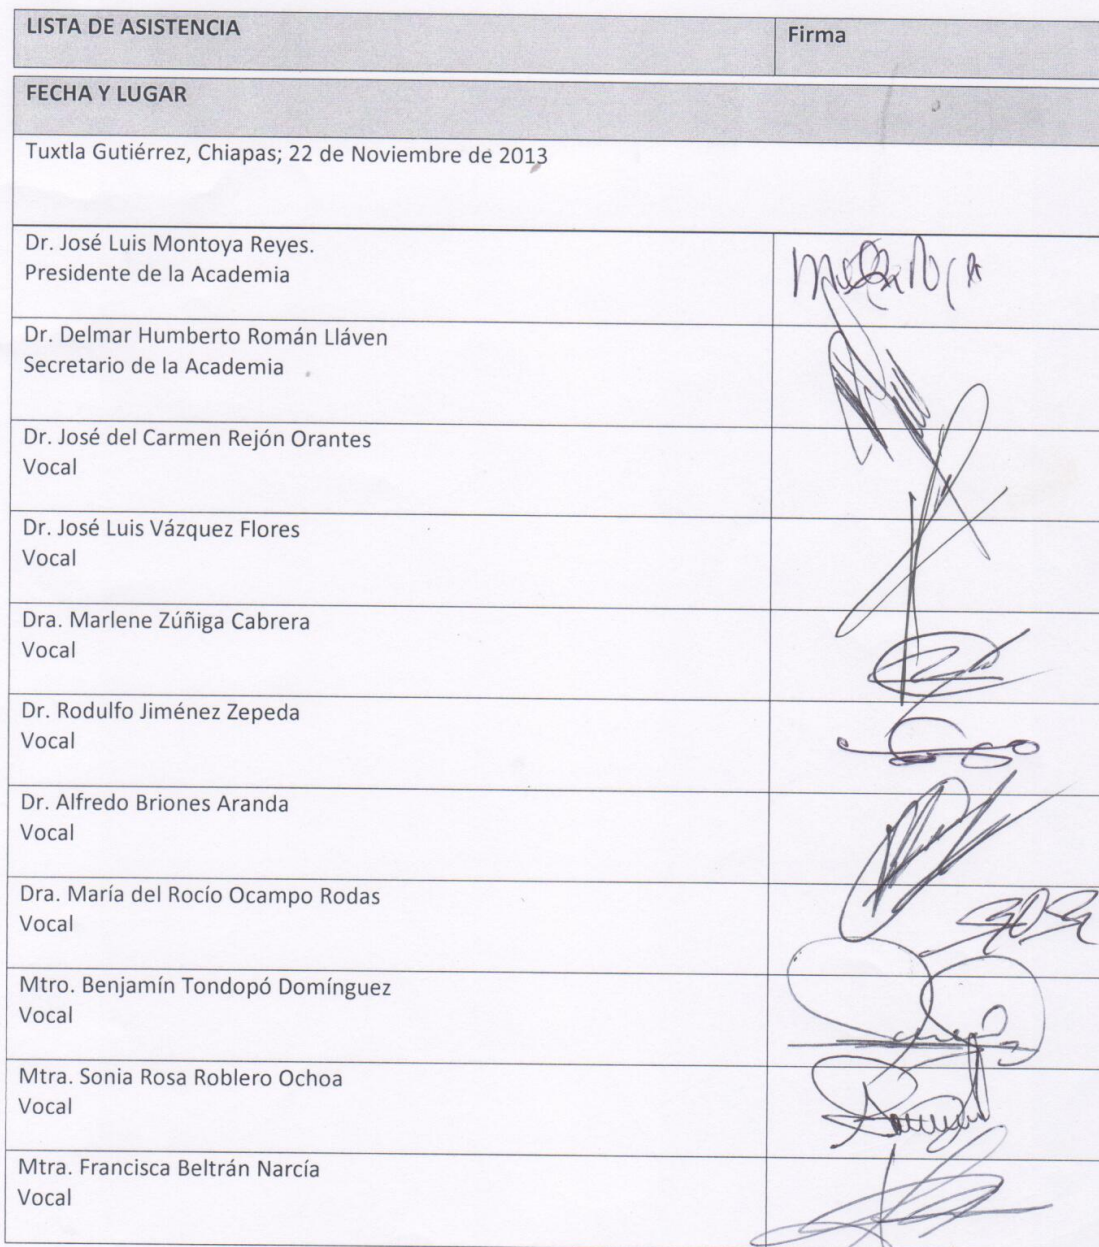 LISTA DE ASISTENCIA
Firma
FECHA Y LUGAR
Tuxtla Gutiérrez, Chiapas; 22 de Noviembre de 2013
Dr. José Luis Montoya Reyes.
Presidente de la Academia
Dr. Delmar Humberto Román Lláven
Secretario de la Academia
Dr. José del Carmen Rejón Orantes
Vocal
Dr. José Luis Vázquez Flores
Vocal
Dra. Marlene Zúñiga Cabrera
Vocal
Dr. Rodulfo Jiménez Zepeda
Vocal
Dr. Alfredo Briones Aranda
Vocal
Dra. María del Rocío Ocampo Rodas
Vocal
Mtro. Benjamín Tondopó Domínguez
Vocal
Mtra. Sonia Rosa Roblero Ochoa
Vocal
Mtra. Francisca Beltrán Narcía
Vocal